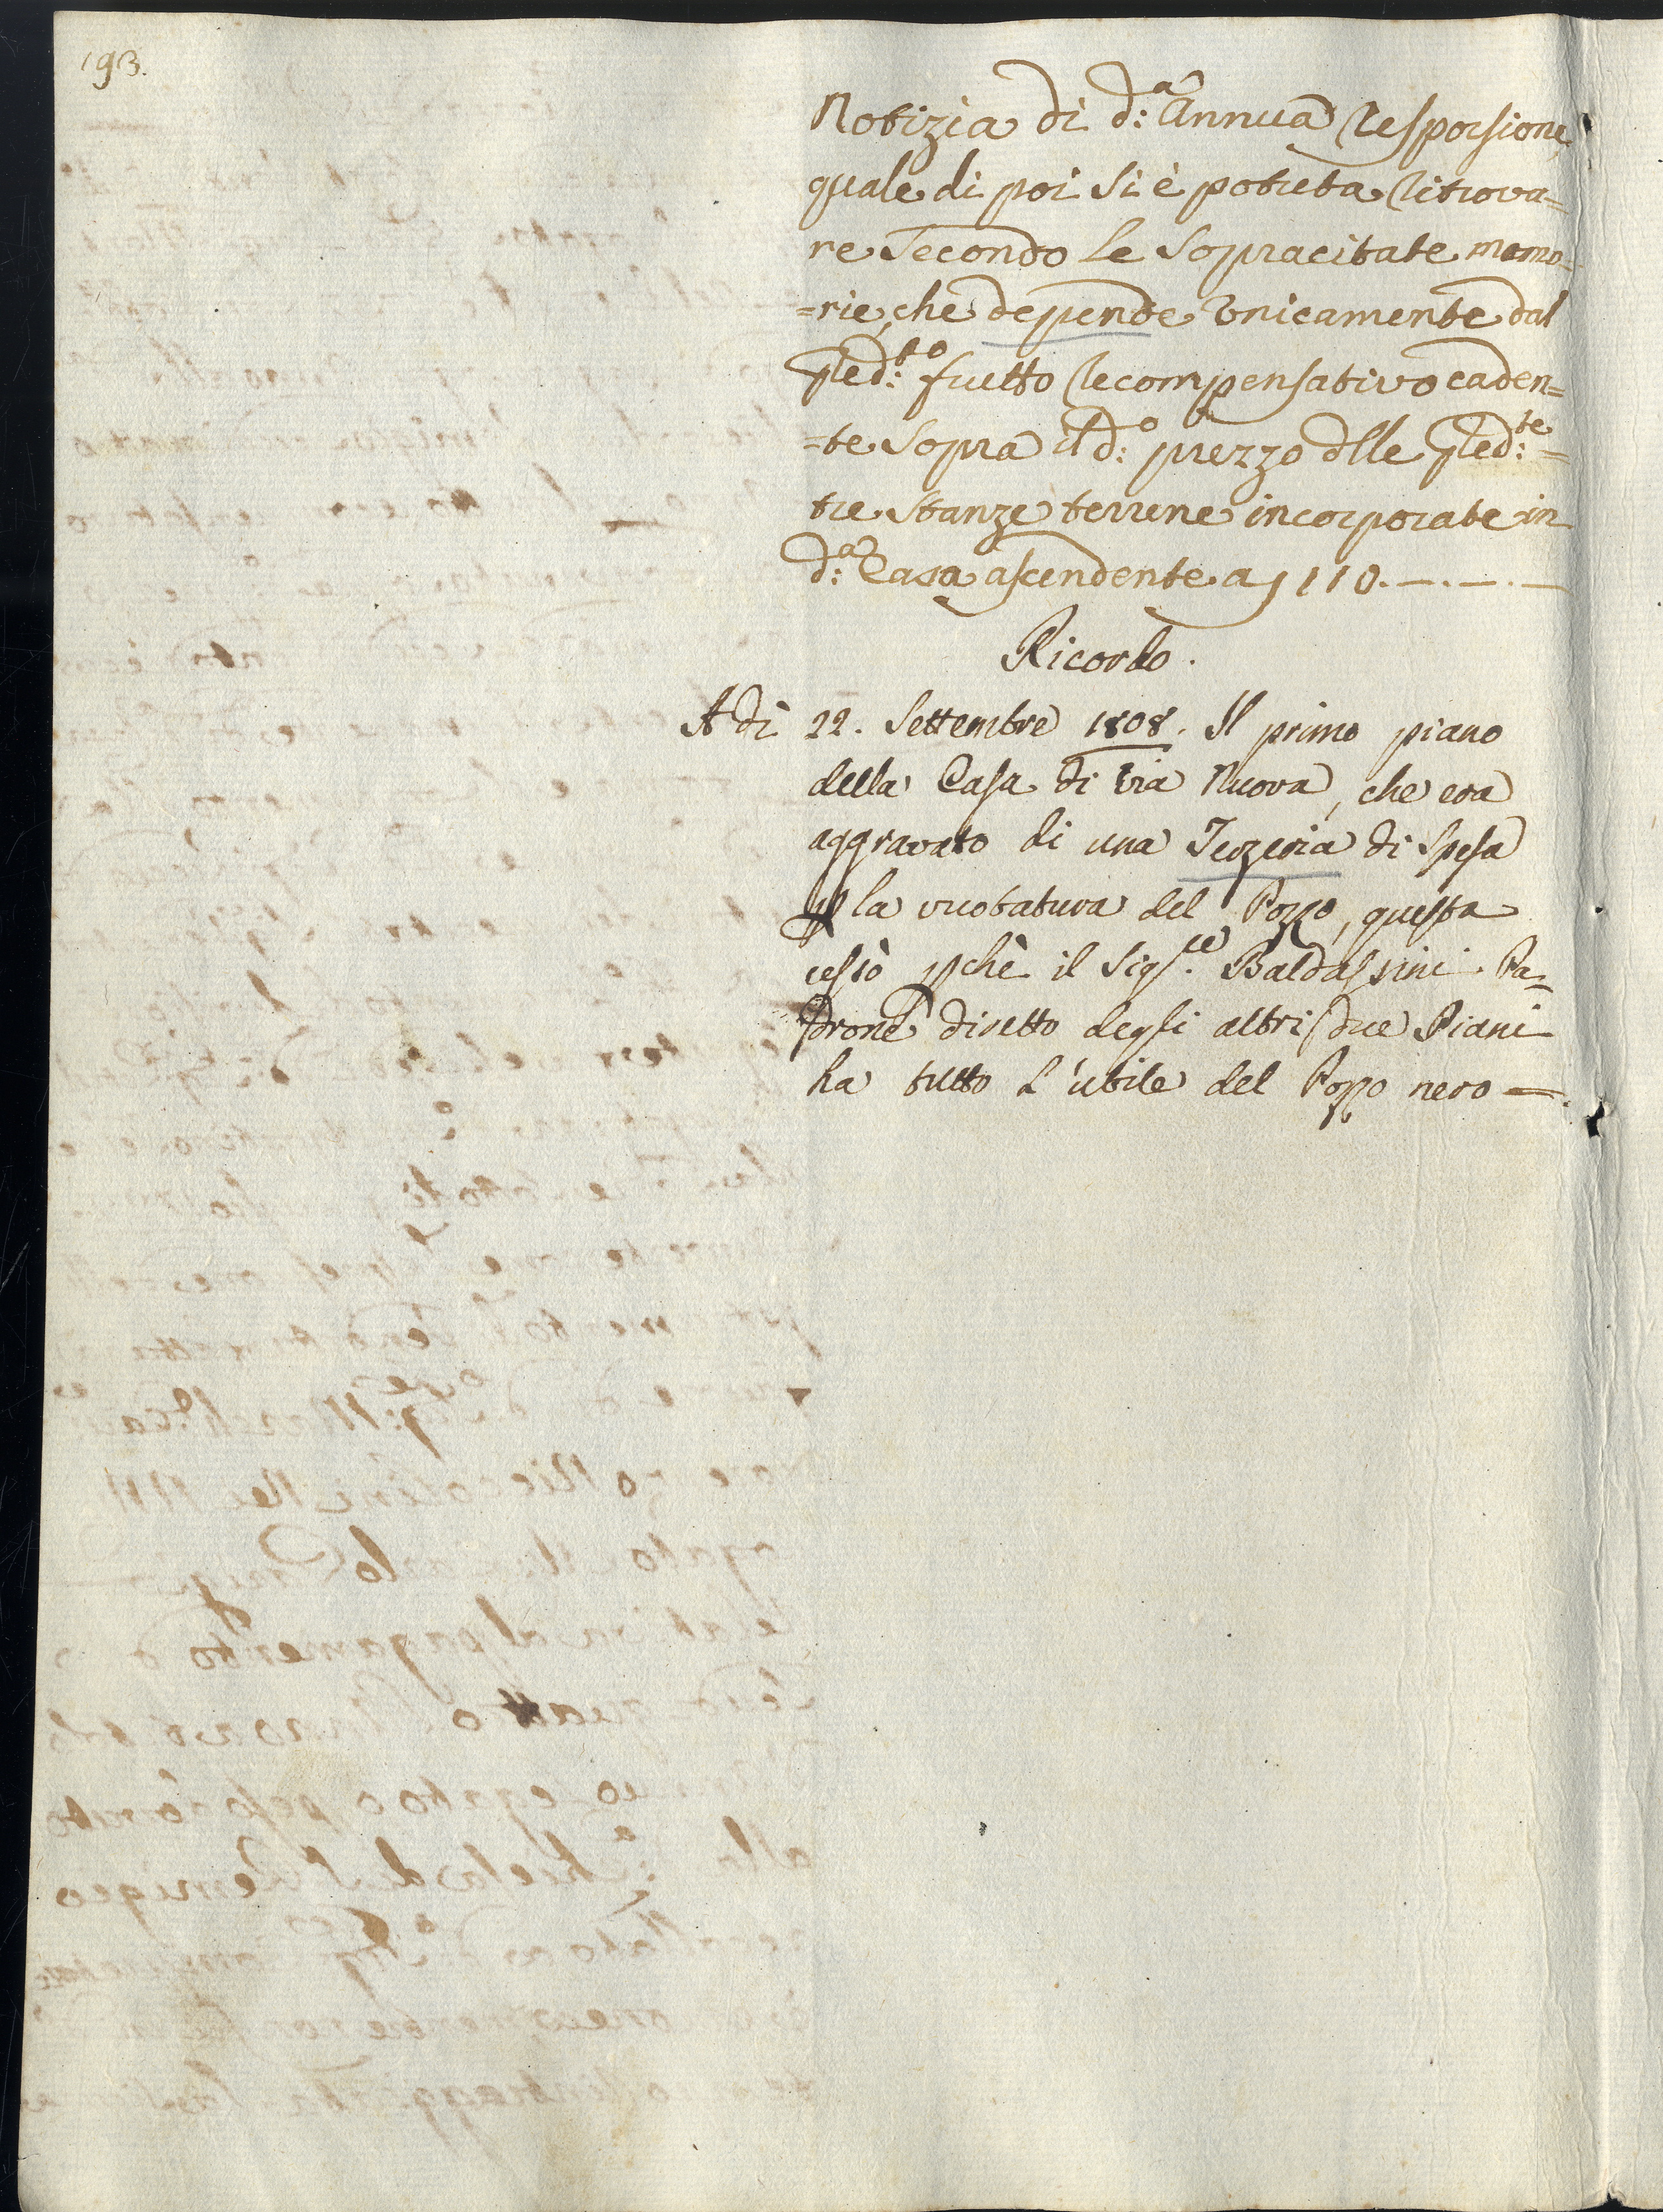 193.
Notizia di d:a Annua Responsione,
quale di poi si è potuta ritrova=
re secondo le sopracitate memo=
=rie, che depende Unicamente dal
Pred:to frutto recompensativo caden=
=te sopra il d:o prezzo dlle Pred:te =
tre stanze terrene incorporate in
d:a Casa ascendente a 110.—.—.—
Ricordo.
A di 22. Settembre 1808. Il primo piano
della Casa di Via Nuova, che era
aggravato di una Terzeria di Spesa
p la vuotatura del Pozzo, questa
cessò pchè il Sigr.re Baldassini Pa=
drone diretto degli altri due Piani
ha tutto l'utile del Pozzo nero —.